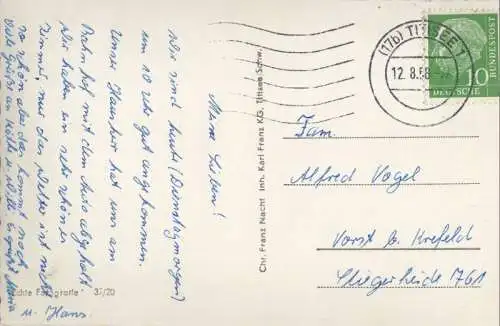 Meine Lieben!
Wir sind heute (Dienstagmorgen)
um 10 Uhr gut angekommen.
Unser Hausherr hat uns am
Bahnhof mit dem Auto abgeholt
Wir haben ein sehr schönes
Zimmer, nur das Wetter ist nicht
so schön aber das kommt noch.
Viele Grüße an Käthe u. Willi
Maria
u. Hans.
Echte Fotografie 37/20
Chr. Franz Nacht Inh. Karl Franz K.G. Titisee Schw.
(17b) TITISEE
12.8.58
DEUTSCHE
BUNDESPOST
10
Fam.
Alfred Vogel
Vorst b. Krefeld
Fliegerheide 761